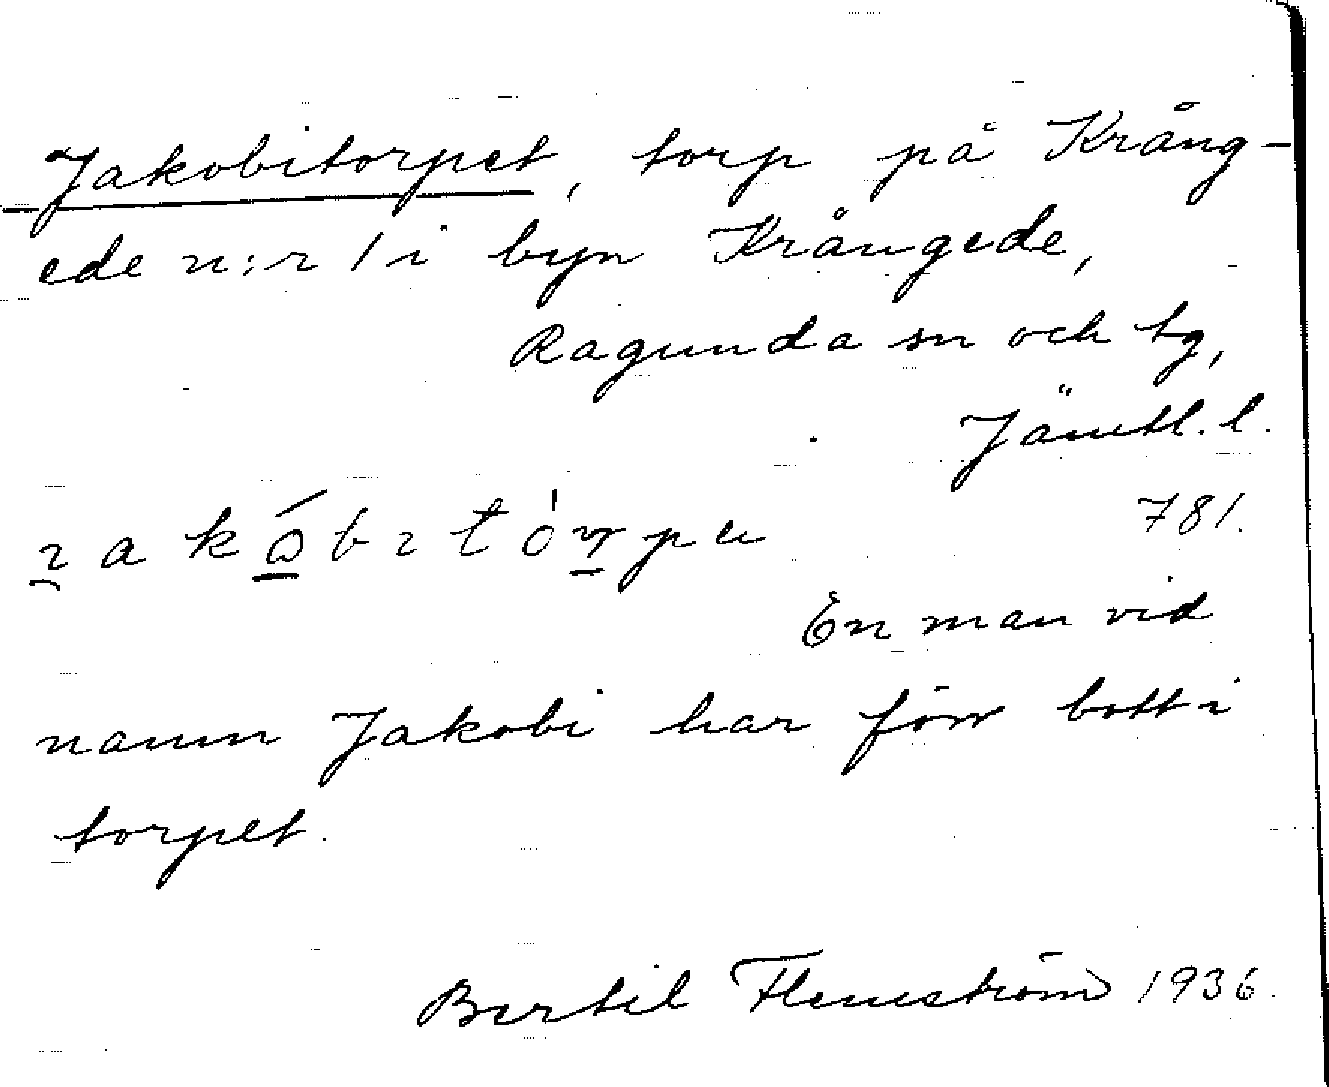 Jakobitorpet, torp på Krång-
ede n:r 1 i byn Krångede,
Ragunda sn och tg,
Jämtl. l.
781.
En man vid
namn Jakobi har förr bott i
torpet.
Bertil Flemström 1936.